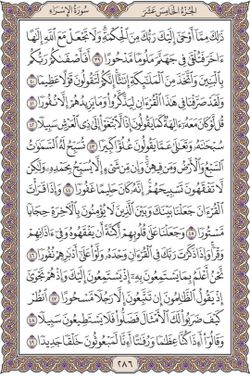 سُورَةُ الإِسْرَاءِ
الجُزْءُ الخَامِسَ عَشَرَ
ذَٰلِكَ مِمَّا أَوْحَىٰ إِلَيْكَ رَبُّكَ مِنَ الْحِكْمَةِ وَلَا تَجْعَلْ مَعَ اللَّهِ إِلَٰهًا
آخَرَ فَتُلْقَىٰ فِي جَهَنَّمَ مَلُومًا مَّدْحُورًا ٣٩ أَفَأَصْفَاكُمْ رَبُّكُم
بِالْبَنِينَ وَاتَّخَذَ مِنَ الْمَلَائِكَةِ إِنَاثًا إِنَّكُمْ لَتَقُولُونَ قَوْلًا عَظِيمًا ٤٠
وَلَقَدْ صَرَّفْنَا فِي هَٰذَا الْقُرْآنِ لِيَذَّكَّرُوا وَمَا يَزِيدُهُمْ إِلَّا نُفُورًا ٤١
قُل لَّوْ كَانَ مَعَهُ آلِهَةٌ كَمَا يَقُولُونَ إِذًا لَّابْتَغَوْا إِلَىٰ ذِي الْعَرْشِ سَبِيلًا ٤٢
سُبْحَانَهُ وَتَعَالَىٰ عَمَّا يَقُولُونَ عُلُوًّا كَبِيرًا ٤٣ تُسَبِّحُ لَهُ السَّمَاوَاتُ
السَّبْعُ وَالْأَرْضُ وَمَن فِيهِنَّ وَإِن مِّن شَيْءٍ إِلَّا يُسَبِّحُ بِحَمْدِهِ وَلَٰكِن
لَّا تَفْقَهُونَ تَسْبِيحَهُمْ إِنَّهُ كَانَ حَلِيمًا غَفُورًا ٤٤ وَإِذَا قَرَأْتَ
الْقُرْآنَ جَعَلْنَا بَيْنَكَ وَبَيْنَ الَّذِينَ لَا يُؤْمِنُونَ بِالْآخِرَةِ حِجَابًا
مَّسْتُورًا ٤٥ وَجَعَلْنَا عَلَىٰ قُلُوبِهِمْ أَكِنَّةً أَن يَفْقَهُوهُ وَفِي آذَانِهِمْ
وَقْرًا وَإِذَا ذَكَرْتَ رَبَّكَ فِي الْقُرْآنِ وَحْدَهُ وَلَّوْا عَلَىٰ أَدْبَارِهِمْ نُفُورًا ٤٦
نَّحْنُ أَعْلَمُ بِمَا يَسْتَمِعُونَ بِهِ إِذْ يَسْتَمِعُونَ إِلَيْكَ وَإِذْ هُمْ نَجْوَىٰ
إِذْ يَقُولُ الظَّالِمُونَ إِن تَتَّبِعُونَ إِلَّا رَجُلًا مَّسْحُورًا ٤٧ انظُرْ
كَيْفَ ضَرَبُوا لَكَ الْأَمْثَالَ فَضَلُّوا فَلَا يَسْتَطِيعُونَ سَبِيلًا ٤٨
وَقَالُوا أَإِذَا كُنَّا عِظَامًا وَرُفَاتًا أَإِنَّا لَمَبْعُوثُونَ خَلْقًا جَدِيدًا ٤٩
٢٨٦